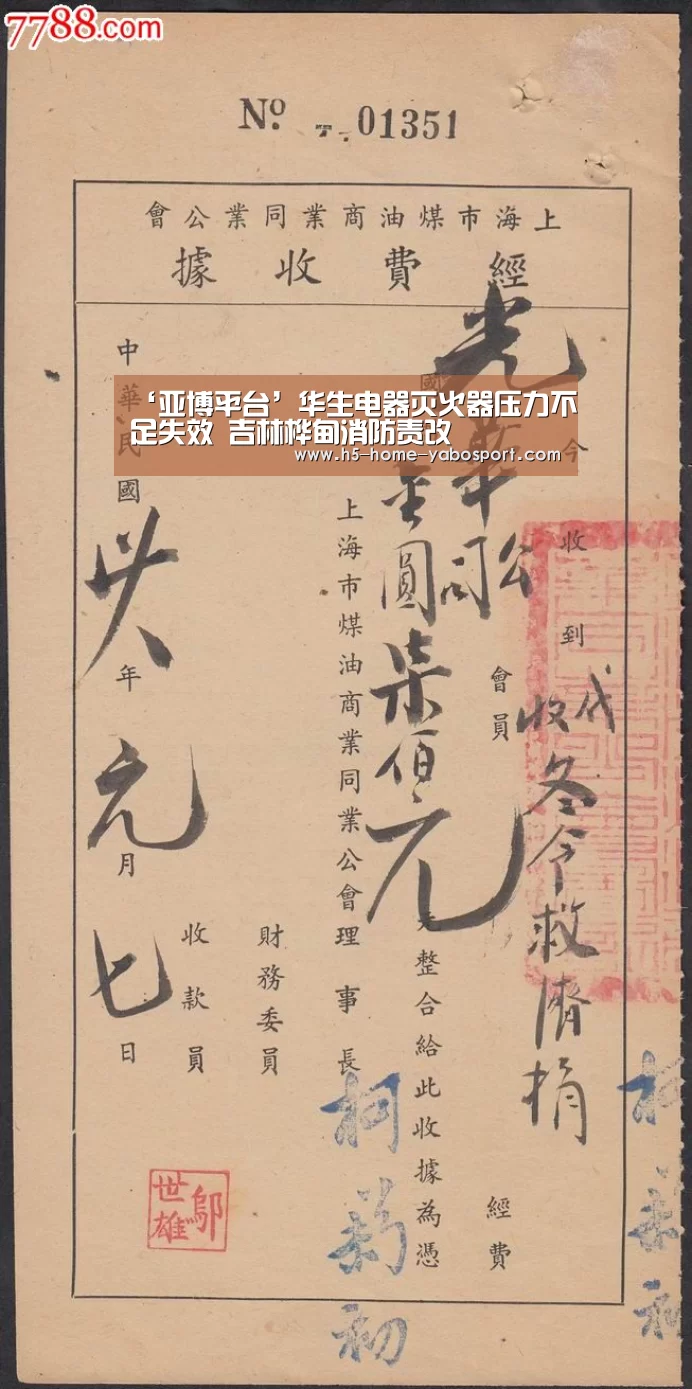 7788.com
No. 01351
上海市煤油商業同業公會
經費收據
今收到
光華公司
會員
代收冬令救濟捐
經費
國
金圓柒佰元
整合給此收據為憑
上海市煤油商業同業公會理事長
柯菊初
財務委員
收款員
鄔世雄
中華民國卅八年元月七日
‘亚博平台’华生电器灭火器压力不
足失效 吉林桦甸消防责改
www.h5-home-yabosport.com